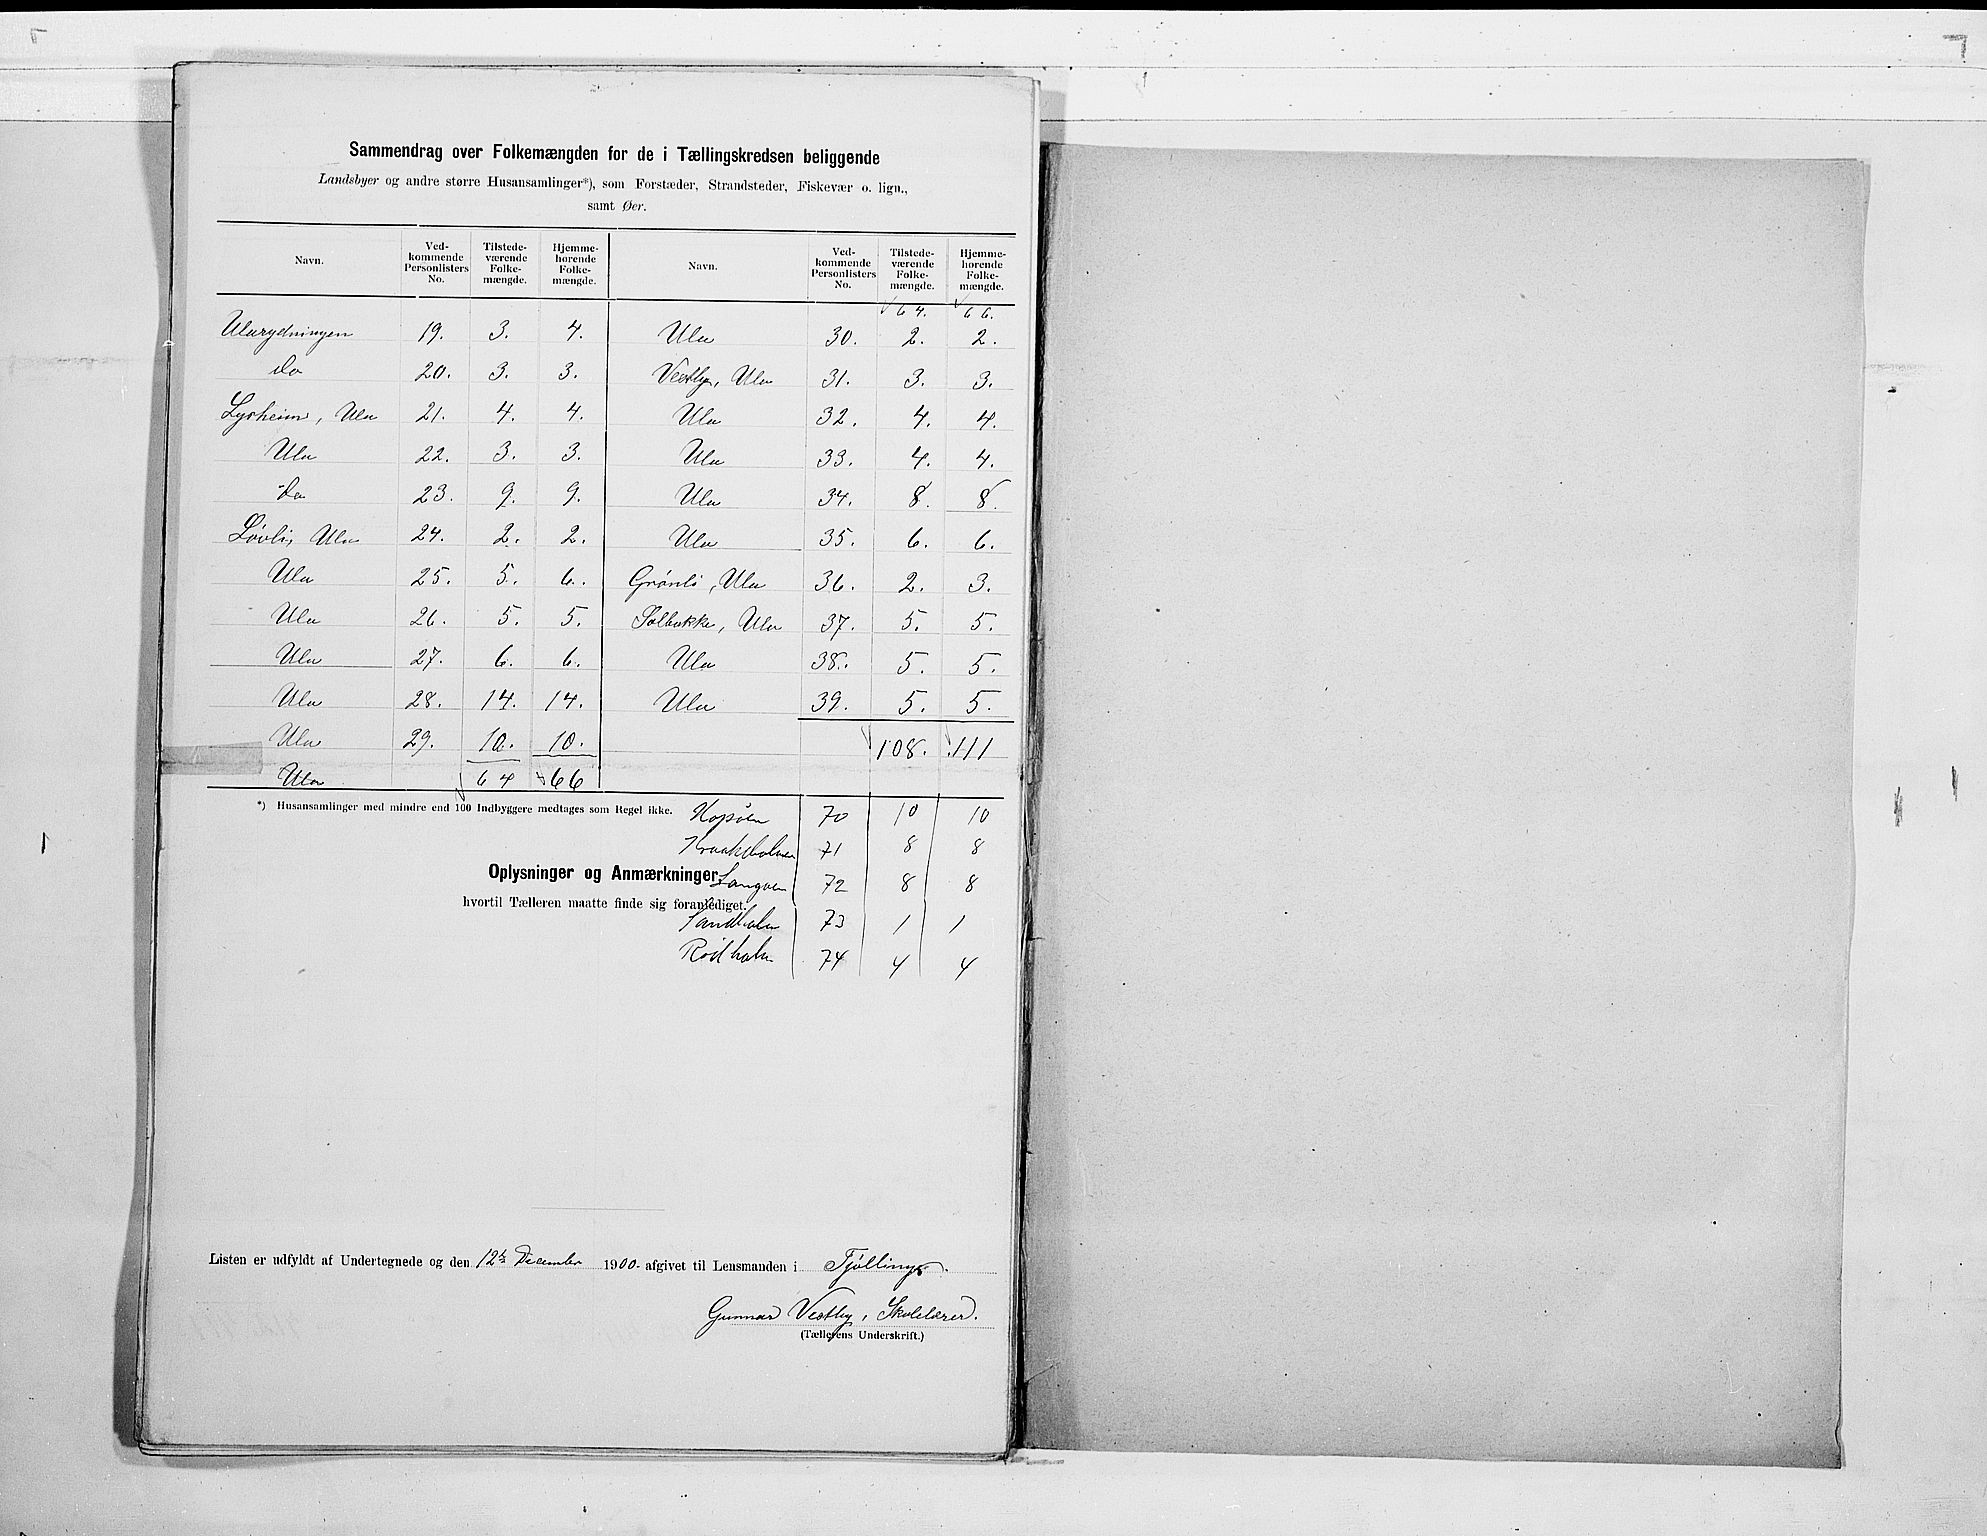 Sammendrag over Folkemængden for de i Tællingskredsen beliggende
Landsbyer og andre større Husansamlinger*), som Forstæder, Strandsteder, Fiskevær o. lign.,
samt Øer.
Navn. Ved-kommende Personlisters No. Tilstede-værende Folke-mængde. Hjemme-hørende Folke-mængde. Navn. Ved-kommende Personlisters No. Tilstede-værende Folke-mængde. Hjemme-hørende Folke-mængde.
64. 66.
Ularydningen 19. 3. 4. Ula 30. 2. 2.
do 20. 3. 3. Vestby, Ula 31. 3. 3.
Lysheim, Ula 21. 4. 4. Ula 32. 4. 4.
Ula 22. 3. 3. Ula 33. 4. 4.
do 23. 9. 9. Ula 34. 8. 8.
Løvli, Ula 24. 2. 2. Ula 35. 6. 6.
Ula 25. 5. 6. Grønli, Ula 36. 2. 3.
Ula 26. 5. 5. Solbakke, Ula 37. 5. 5.
Ula 27. 6. 6. Ula 38. 5. 5.
Ula 28. 14. 14. Ula 39. 5. 5.
Ula 29. 10. 10. 108. 111
Ula 64 66
*) Husansamlinger med mindre end 100 Indbyggere medtages som Regel ikke.
70 10 10
71 8 8
Oplysninger og Anmærkninger,
Langøen 72 8 8
hvortil Tælleren maatte finde sig foranlediget.
Sandholm 73 1 1
Rødholm 74 4 4
Listen er udfyldt af Undertegnede og den 12te December 1900. afgivet til Lensmanden i Tjølling.
Gunnar Vestby, Skolelærer.
(Tællerens Underskrift.)